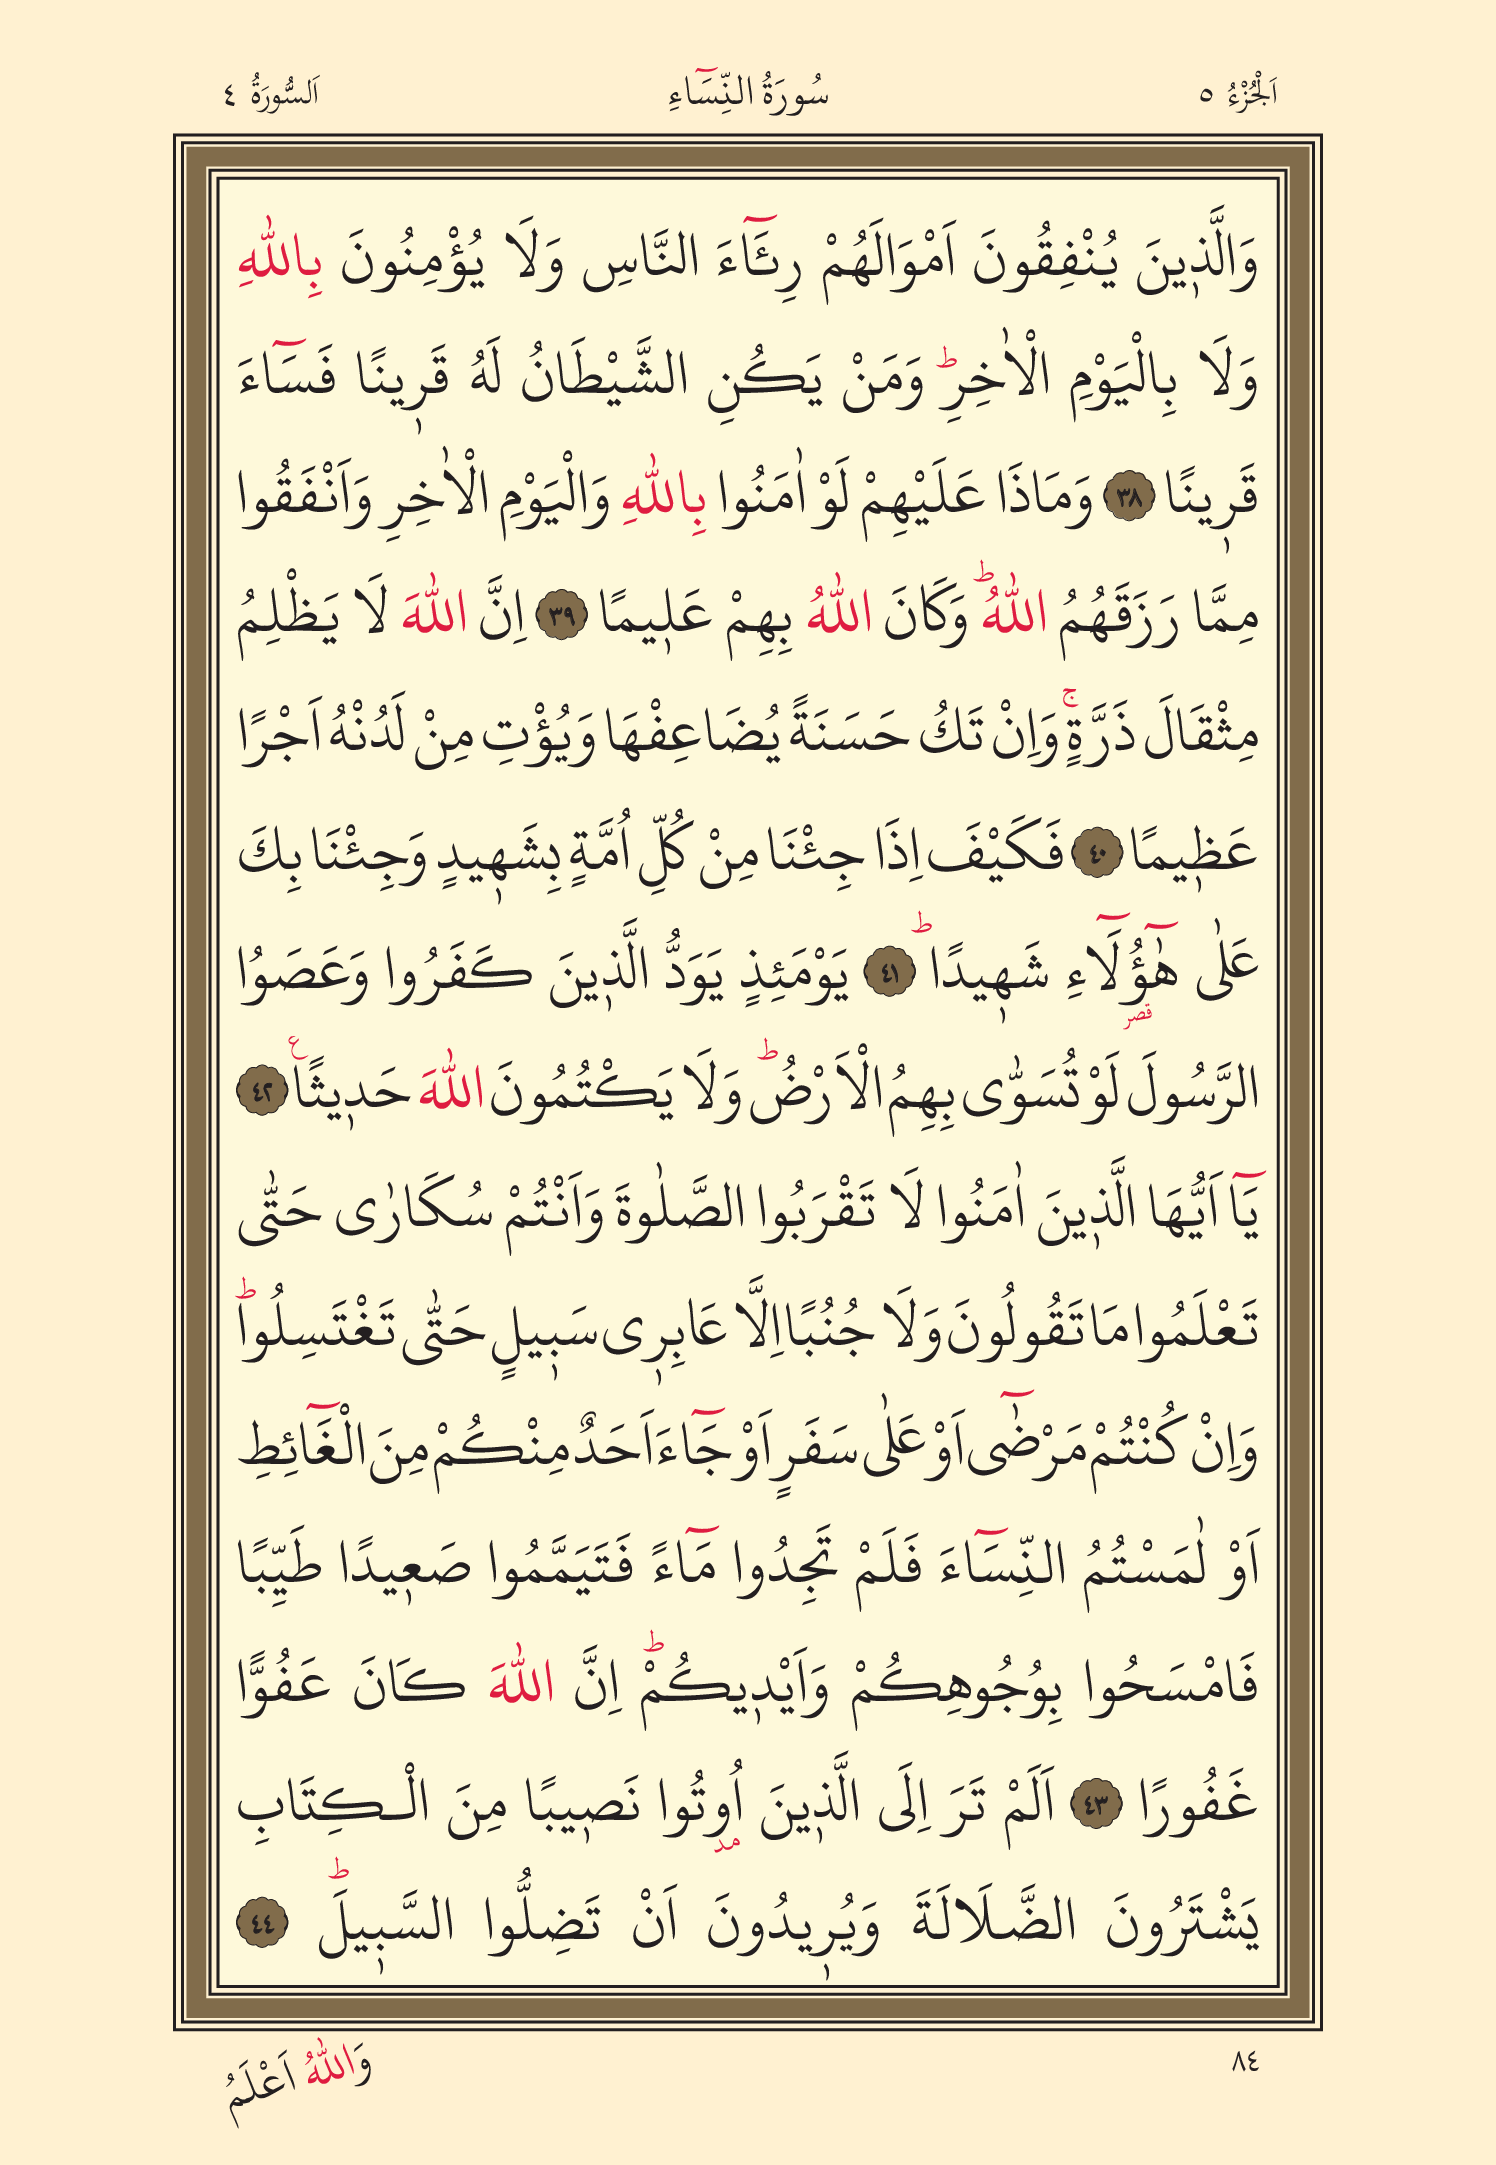 اَلْجُزْءُ ٥
سُورَةُ النِّسَٓاءِ
اَلسُّورَةُ ٤
وَالَّذ۪ينَ يُنْفِقُونَ اَمْوَالَهُمْ رِئَٓاءَ النَّاسِ وَلَا يُؤْمِنُونَ بِاللّٰهِ
وَلَا بِالْيَوْمِ الْاٰخِرِۜ وَمَنْ يَكُنِ الشَّيْطَانُ لَهُ قَر۪ينًا فَسَٓاءَ
قَر۪ينًا ٣٨ وَمَاذَا عَلَيْهِمْ لَوْ اٰمَنُوا بِاللّٰهِ وَالْيَوْمِ الْاٰخِرِ وَاَنْفَقُوا
مِمَّا رَزَقَهُمُ اللّٰهُۜ وَكَانَ اللّٰهُ بِهِمْ عَل۪يمًا ٣٩ اِنَّ اللّٰهَ لَا يَظْلِمُ
مِثْقَالَ ذَرَّةٍۚ وَاِنْ تَكُ حَسَنَةً يُضَاعِفْهَا وَيُؤْتِ مِنْ لَدُنْهُ اَجْرًا
عَظ۪يمًا ٤٠ فَكَيْفَ اِذَا جِئْنَا مِنْ كُلِّ اُمَّةٍ بِشَه۪يدٍ وَجِئْنَا بِكَ
عَلٰى هٰٓؤُ۬لَٓاءِ شَه۪يدًاۜ ٤١ يَوْمَئِذٍ يَوَدُّ الَّذ۪ينَ كَفَرُوا وَعَصَوُا
قصر
الرَّسُولَ لَوْ تُسَوّٰى بِهِمُ الْاَرْضُۜ وَلَا يَكْتُمُونَ اللّٰهَ حَد۪يثًاࣖ ٤٢
يَٓا اَيُّهَا الَّذ۪ينَ اٰمَنُوا لَا تَقْرَبُوا الصَّلٰوةَ وَاَنْتُمْ سُكَارٰى حَتّٰى
تَعْلَمُوا مَا تَقُولُونَ وَلَا جُنُبًا اِلَّا عَابِر۪ى سَب۪يلٍ حَتّٰى تَغْتَسِلُواۜ
وَاِنْ كُنْتُمْ مَرْضٰٓى اَوْ عَلٰى سَفَرٍ اَوْ جَٓاءَ اَحَدٌ مِنْكُمْ مِنَ الْغَٓائِطِ
اَوْ لٰمَسْتُمُ النِّسَٓاءَ فَلَمْ تَجِدُوا مَٓاءً فَتَيَمَّمُوا صَع۪يدًا طَيِّبًا
فَامْسَحُوا بِوُجُوهِكُمْ وَاَيْد۪يكُمْۜ اِنَّ اللّٰهَ كَانَ عَفُوًّا
غَفُورًا ٤٣ اَلَمْ تَرَ اِلَى الَّذ۪ينَ اُو۫تُوا نَص۪يبًا مِنَ الْكِتَابِ
مد
يَشْتَرُونَ الضَّلَالَةَ وَيُر۪يدُونَ اَنْ تَضِلُّوا السَّب۪يلَۜ ٤٤
٨٤
وَاللّٰهُ اَعْلَمُ